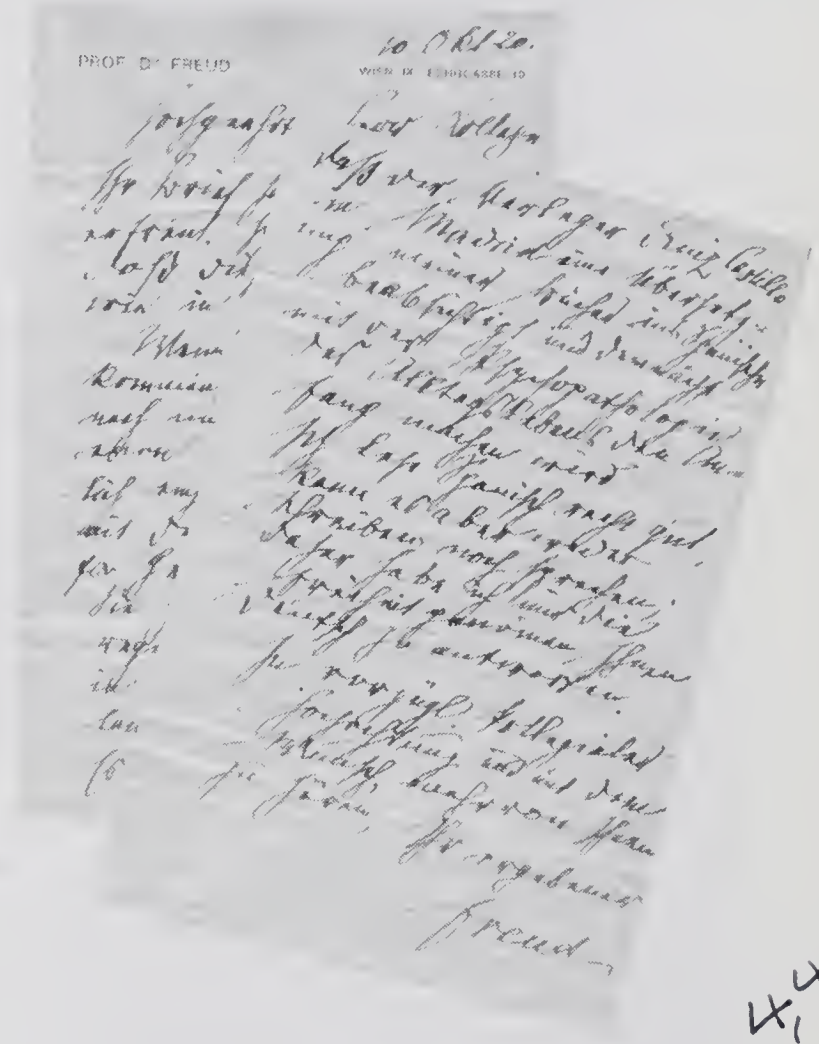 PROF. Dr. FREUD
10 Okt 20.
WIEN IX. BERGGASSE 19
Hochgeehrter Herr Kollege
Ihr Brief h
erfreut. H
daß die
wie in
Wenn
kommen
noch ein
eben
lich eng
mit de
Sie
rege
in
lan
daß der Verleger Ruiz Castillo
in Madrid eine Übersetz-
ung meiner Bücher ins Spanische
beabsichtigt und demnächst
mit der Psychopathologie
des Alltagslebens den An-
fang machen wird
Ich lese Spanisch recht gut,
kann es aber weder
schreiben noch sprechen;
daher habe ich mir die
Freiheit genommen, Ihnen
Deutsch zu antworten.
In vorzügl kollegialer
Hochachtung und mit dem
Wunsch mehr von Ihnen
zu hören,
Ihr ergebener
Freud
4,4